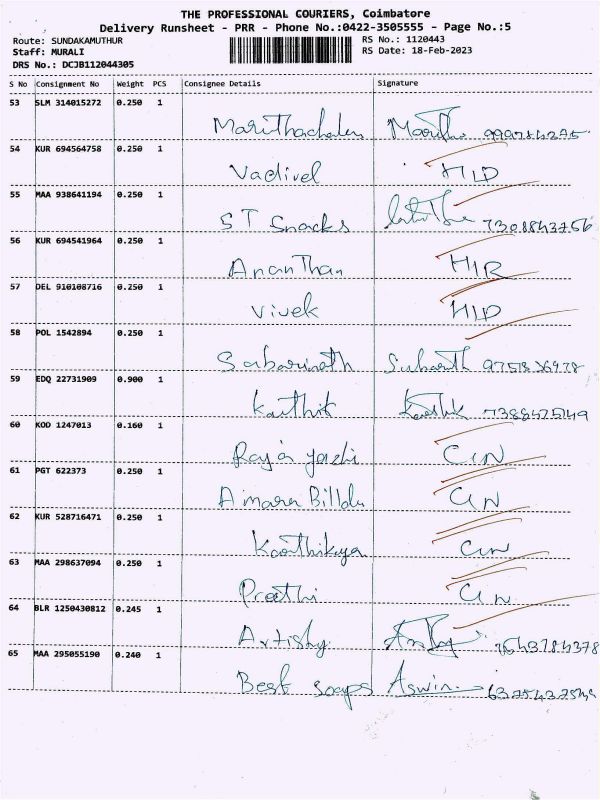 THE PROFESSIONAL COURIERS, Coimbatore
Delivery Runsheet - PRR - Phone No.:0422-3505555 - Page No.:5
Route: SUNDAKAMUTHUR
RS No.: 1120443
Staff: MURALI
RS Date: 18-Feb-2023
DRS No.: DCJB112044305
S No Consignment No Weight PCS Consignee Details Signature
53 SLM 314015272 0.250 1
Maruthachalam
54 KUR 694564758 0.250 1
Vadivel HLD
55 MAA 938641194 0.250 1
ST Snacks 7308843756
56 KUR 694541964 0.250 1
Ananthan
57 DEL 910108716 0.250 1
Vivek HLD
58 POL 1542894 0.250 1
Sabarinath
59 EDQ 22731909 0.900 1
Karthik Karthik
60 KOD 1247013 0.160 1
CIN
61 PGT 622373 0.250 1
CIN
62 KUR 528716471 0.250 1
Karthikeya CIN
63 MAA 298637094 0.250 1
Preethi CIN
64 BLR 1250430812 0.245 1
65 MAA 295055190 0.240 1
Best soaps Aswin